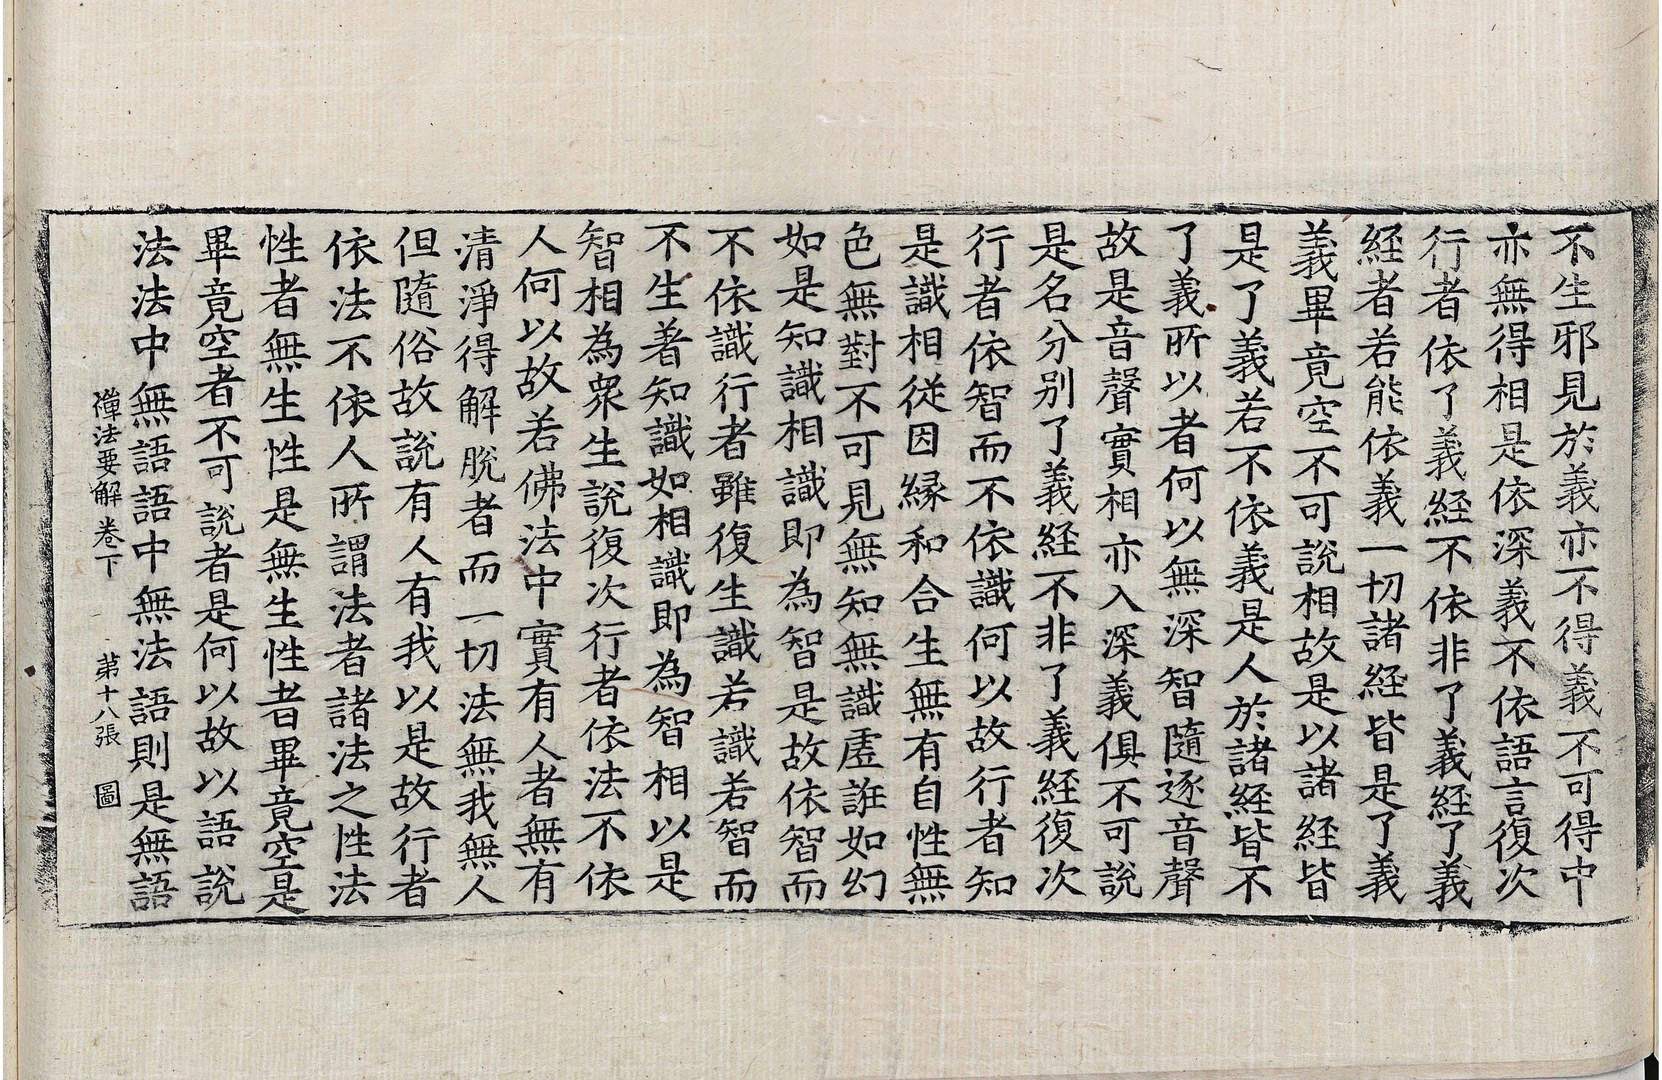 不生邪見於義亦不得義不可得中
亦無得相是依深義不依語言復次
行者依了義経不依非了義経了義
経者若能依義一切諸経皆是了義
義畢竟空不可說相故是以諸経皆
是了義若不依義是人於諸経皆不
了義所以者何以無深智隨逐音聲
故是音聲實相亦入深義俱不可說
是名分別了義経不非了義経復次
行者依智而不依識何以故行者知
是識相從因緣和合生無有自性無
色無對不可見無知無識虛誑如幻
如是知識相識即為智是故依智而
不依識行者雖復生識若識若智而
不生著知識如相識即為智相以是
智相為衆生說復次行者依法不依
人何以故若佛法中實有人者無有
清淨得解脫者而一切法無我無人
但隨俗故說有人有我以是故行者
依法不依人所謂法者諸法之性法
性者無生性是無生性者畢竟空是
畢竟空者不可說者是何以故以語說
法法中無語語中無法語則是無語
禪法要解卷下 第十八張 圖